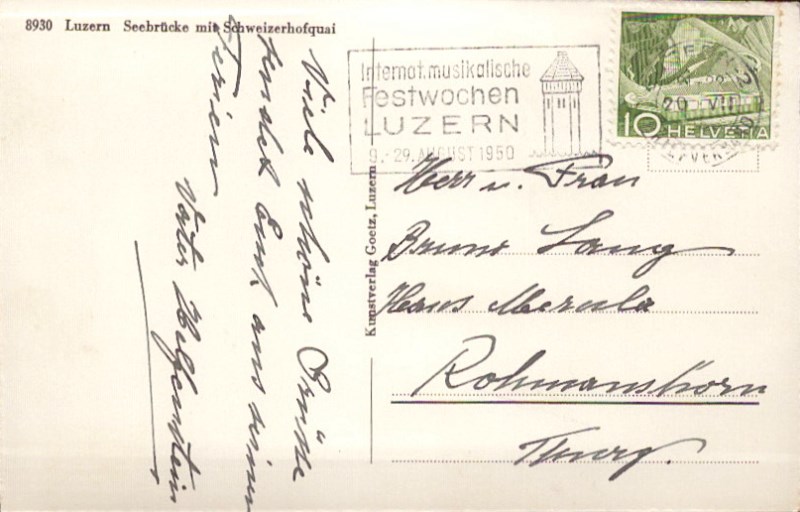 8930 Luzern Seebrücke mit Schweizerhofquai
Viele schöne Grüsse
sendet Euch aus seinen
Ferien
Vater Helfenstein
Kunstverlag Goetz, Luzern
Internat. musikalische
Festwochen
LUZERN
9.-29. AUGUST 1950
10 HELVETIA
20 VII
Herr u. Frau
Bruno Lang
Haus Merula
Rohmanshorn
Thurg.